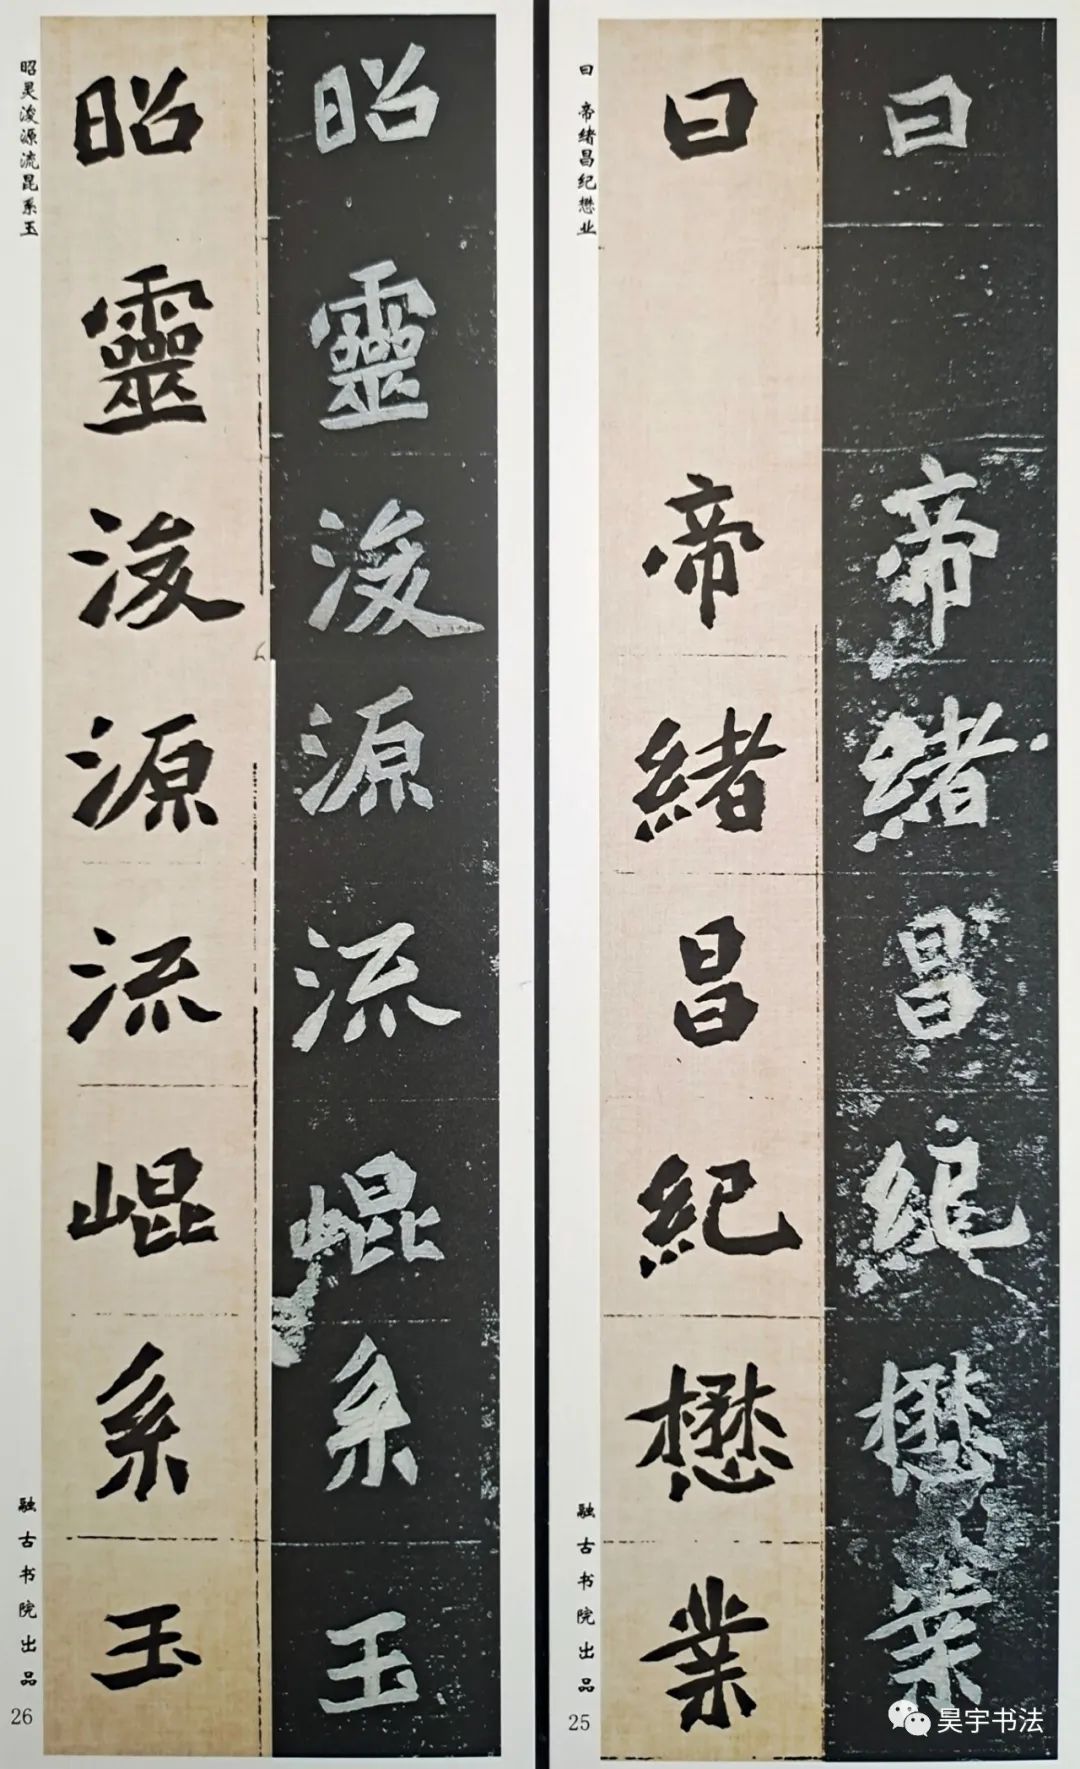 曰帝緒昌紀懋業
曰帝緒昌紀懋業
曰 帝绪昌纪懋业
融古书院出品
25
昭靈浚源流崐系玉
昭靈浚源流崐系玉
昭灵浚源流昆系玉
融古书院出品
26
昊宇书法